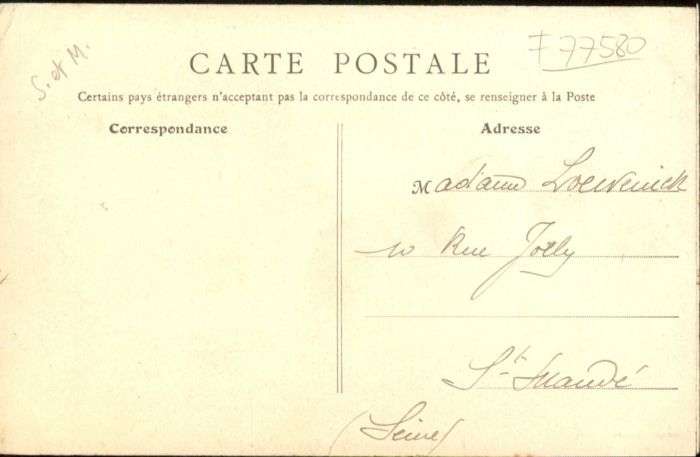 S. et M.
F 77580
CARTE POSTALE
Certains pays étrangers n'acceptant pas la correspondance de ce côté, se renseigner à la Poste
Correspondance
Adresse
Madame Loewenick
10 Rue Jolly
St Mandé
(Seine)